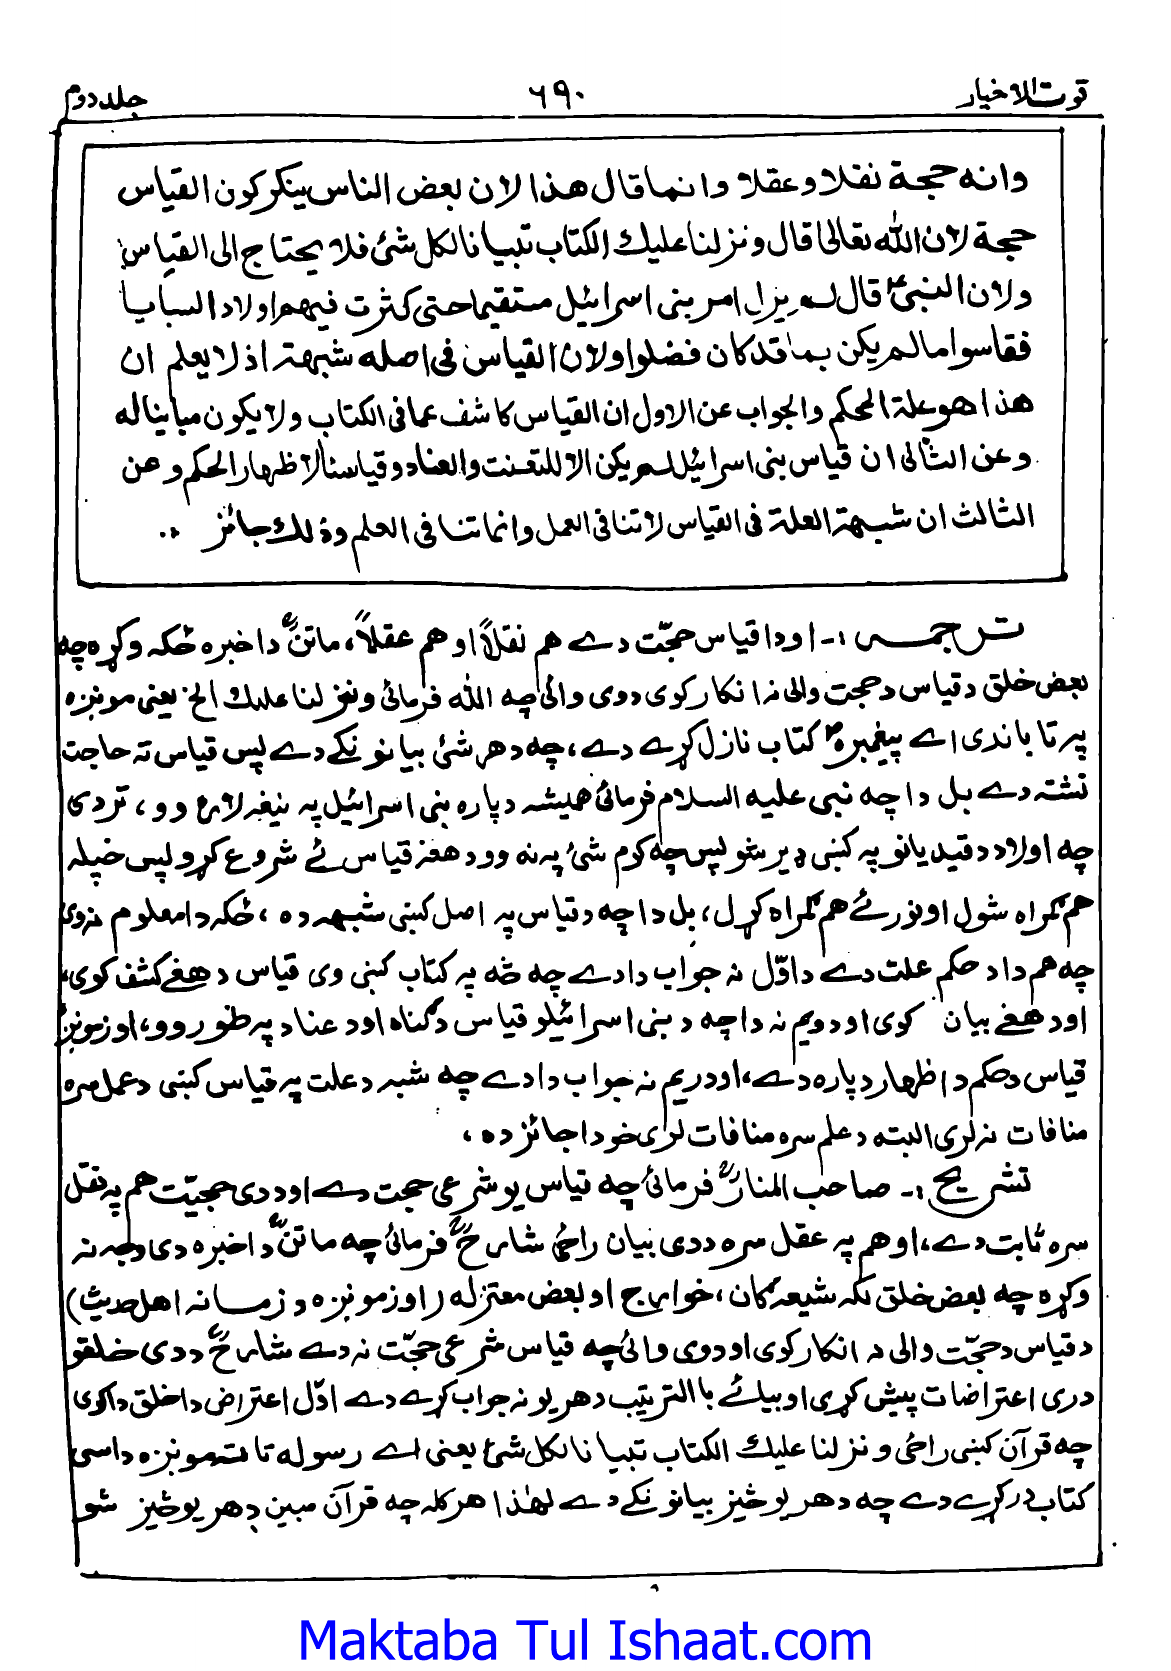 قوت الاخیار ۶۹۰ جلد دوم
وانه حجة نقلا وعقلا وانما قال هذا لان بعض الناس ینکرکون القیاس
حجة لان الله تعالی قال ونزلنا علیك الکتاب تبیانا لکل شئ فلا یحتاج الی القیاس
ولان النبی ؑ قال لم یزل امر بنی اسرائیل مستقیما حتی کثرت فیهم اولاد السبایا
فقاسوا ما لم یکن بما قد کان فضلوا ولان القیاس فی اصله شبهة اذ لا یعلم ان
هذا هو علة الحکم والجواب عن الاول ان القیاس کاشف عما فی الکتاب ولا یکون مباینا له
وعن الثانی ان قیاس بنی اسرائیل لم یکن الا للتعنت والعناد وقیاسنا لاظهار الحکم وعن
الثالث ان شبهة العلة فی القیاس لا تنافی العمل وانما تنافی العلم وذلك جائز ..
ترجمہ :- او دا قیاس حجّت دے هم نقلاً او هم عقلاً، ماتنؒ دا خبره ځکه وکړه چه
بعض خلق د قیاس د حجت والی نه انکار کوی دوی وائی چه الله فرمائی ونزلنا علیك الخ یعنی مونږه
پر تا باندی اے پیغمبره ؐ کتاب نازل کړے دے، چه د هر شئ بیانونکے دے پس قیاس ته حاجت
نشته دے بل دا چه نبی علیه السلام فرمائی همیشه دپاره بنی اسرائیل په نیغه لار وو، تر دی
چه اولاد د قیدیانو په کښی ډیر شو پس چه کوم شئ په نه وو د هغه قیاس ئے شروع کړو پس خپله
هم گمراه شول او نور ئے هم گمراه کړل، بل دا چه د قیاس په اصل کښی شبهه ده، ځکه دا معلوم نه وی
چه هم دا د حکم علت دے د اوّل نه جواب دا دے چه څه په کتاب کښی وی قیاس د هغے کشف کوی،
او د هغے بیان کوی او دویم نه دا چه د بنی اسرائیلو قیاس د گناه او د عناد په طور وو، او زمونږ
قیاس د حکم د اظهار دپاره دے، او دریم نه جواب دا دے چه شبه د علت په قیاس کښی د عمل سره
منافات نه لری البته د علم سره منافات لری خو دا جائز ده،
تشریح :- صاحب المنارؒ فرمائی چه قیاس یو شرعی حجت دے او د دی حجیّت هم په نقل
سره ثابت دے، او هم په عقل سره د دی بیان راځی شارحؒ فرمائی چه ماتنؒ دا خبره د دی وجه نه
وکړه چه بعض خلق لکه شیعه گان، خوارج او بعض معتزله (او زمونږه د زمانه اهل حدیث)
د قیاس د حجّت والی نه انکار کوی او دوی وائی چه قیاس شرعی حجّت نه دے شارحؒ د دی خلقو
دری اعتراضات پیش کړی او بیا ئے بالترتیب د هر یو نه جواب کړے دے اوّل اعتراض دا خلق دا کوی
چه قرآن کښی راځی ونزلنا علیك الکتاب تبیانا لکل شئ یعنی اے رسوله تا ته مونږه داسی
کتاب در کړے دے چه د هر یو څیز بیانونکے دے لهٰذا هر کله چه قرآن مبین د هر یو څیز شو
Maktaba Tul Ishaat.com